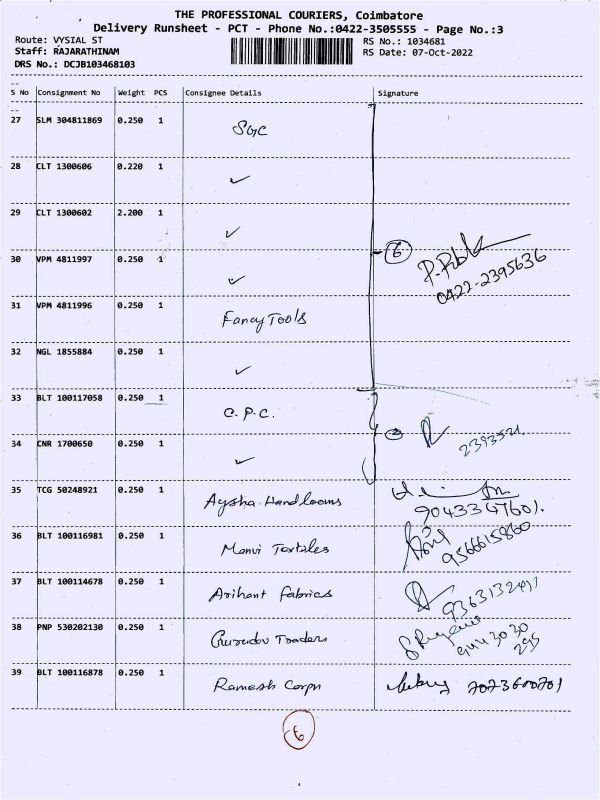 THE PROFESSIONAL COURIERS, Coimbatore
Delivery Runsheet - PCT - Phone No.:0422-3505555 - Page No.:3
Route: VYSIAL ST RS No.: 1034681
Staff: RAJARATHINAM RS Date: 07-Oct-2022
DRS No.: DCJB103468103
S No Consignment No Weight PCS Consignee Details Signature
27 SLM 304811869 0.250 1 SGC
28 CLT 1300606 0.220 1 ✓
29 CLT 1300602 2.200 1 ✓
6
30 VPM 4811997 0.250 1 ✓
0422-2395636
31 VPM 4811996 0.250 1 Fancy Tools
32 NGL 1855884 0.250 1 ✓
33 BLT 100117058 0.250 1 C.P.C.
34 CNR 1700650 0.250 1 ✓
35 TCG 50248921 0.250 1 Aysha Handlooms
9043347601.
36 BLT 100116981 0.250 1 Manvi Textiles 9566615860
37 BLT 100114678 0.250 1 Arihant fabrics
38 PNP 530202130 0.250 1 Gurudev Traders 9443030
295
39 BLT 100116878 0.250 1 Ramesh Corpn
6